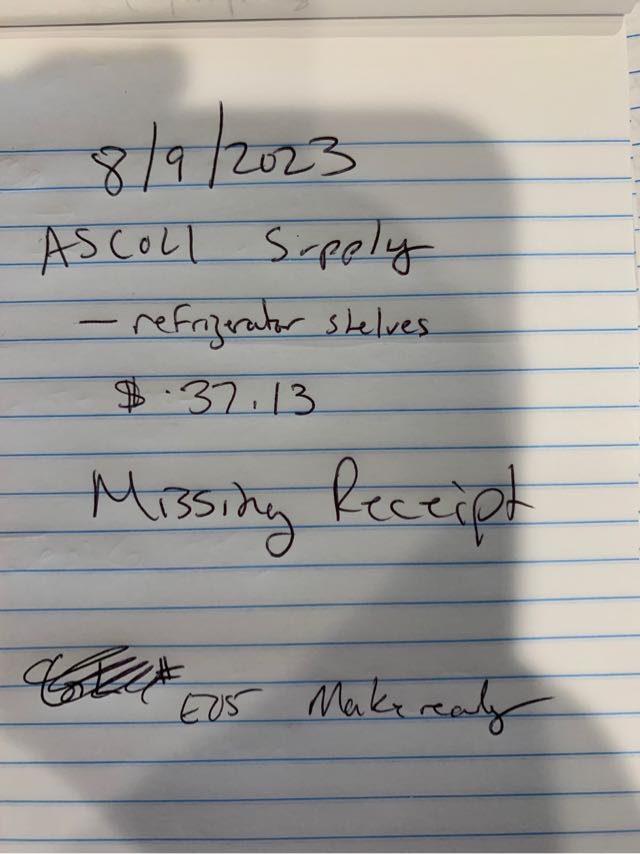 8/9/2023
ASCOLI Supply
— refrigerator shelves
$ 37.13
Missing Receipt
# E05 Makeready